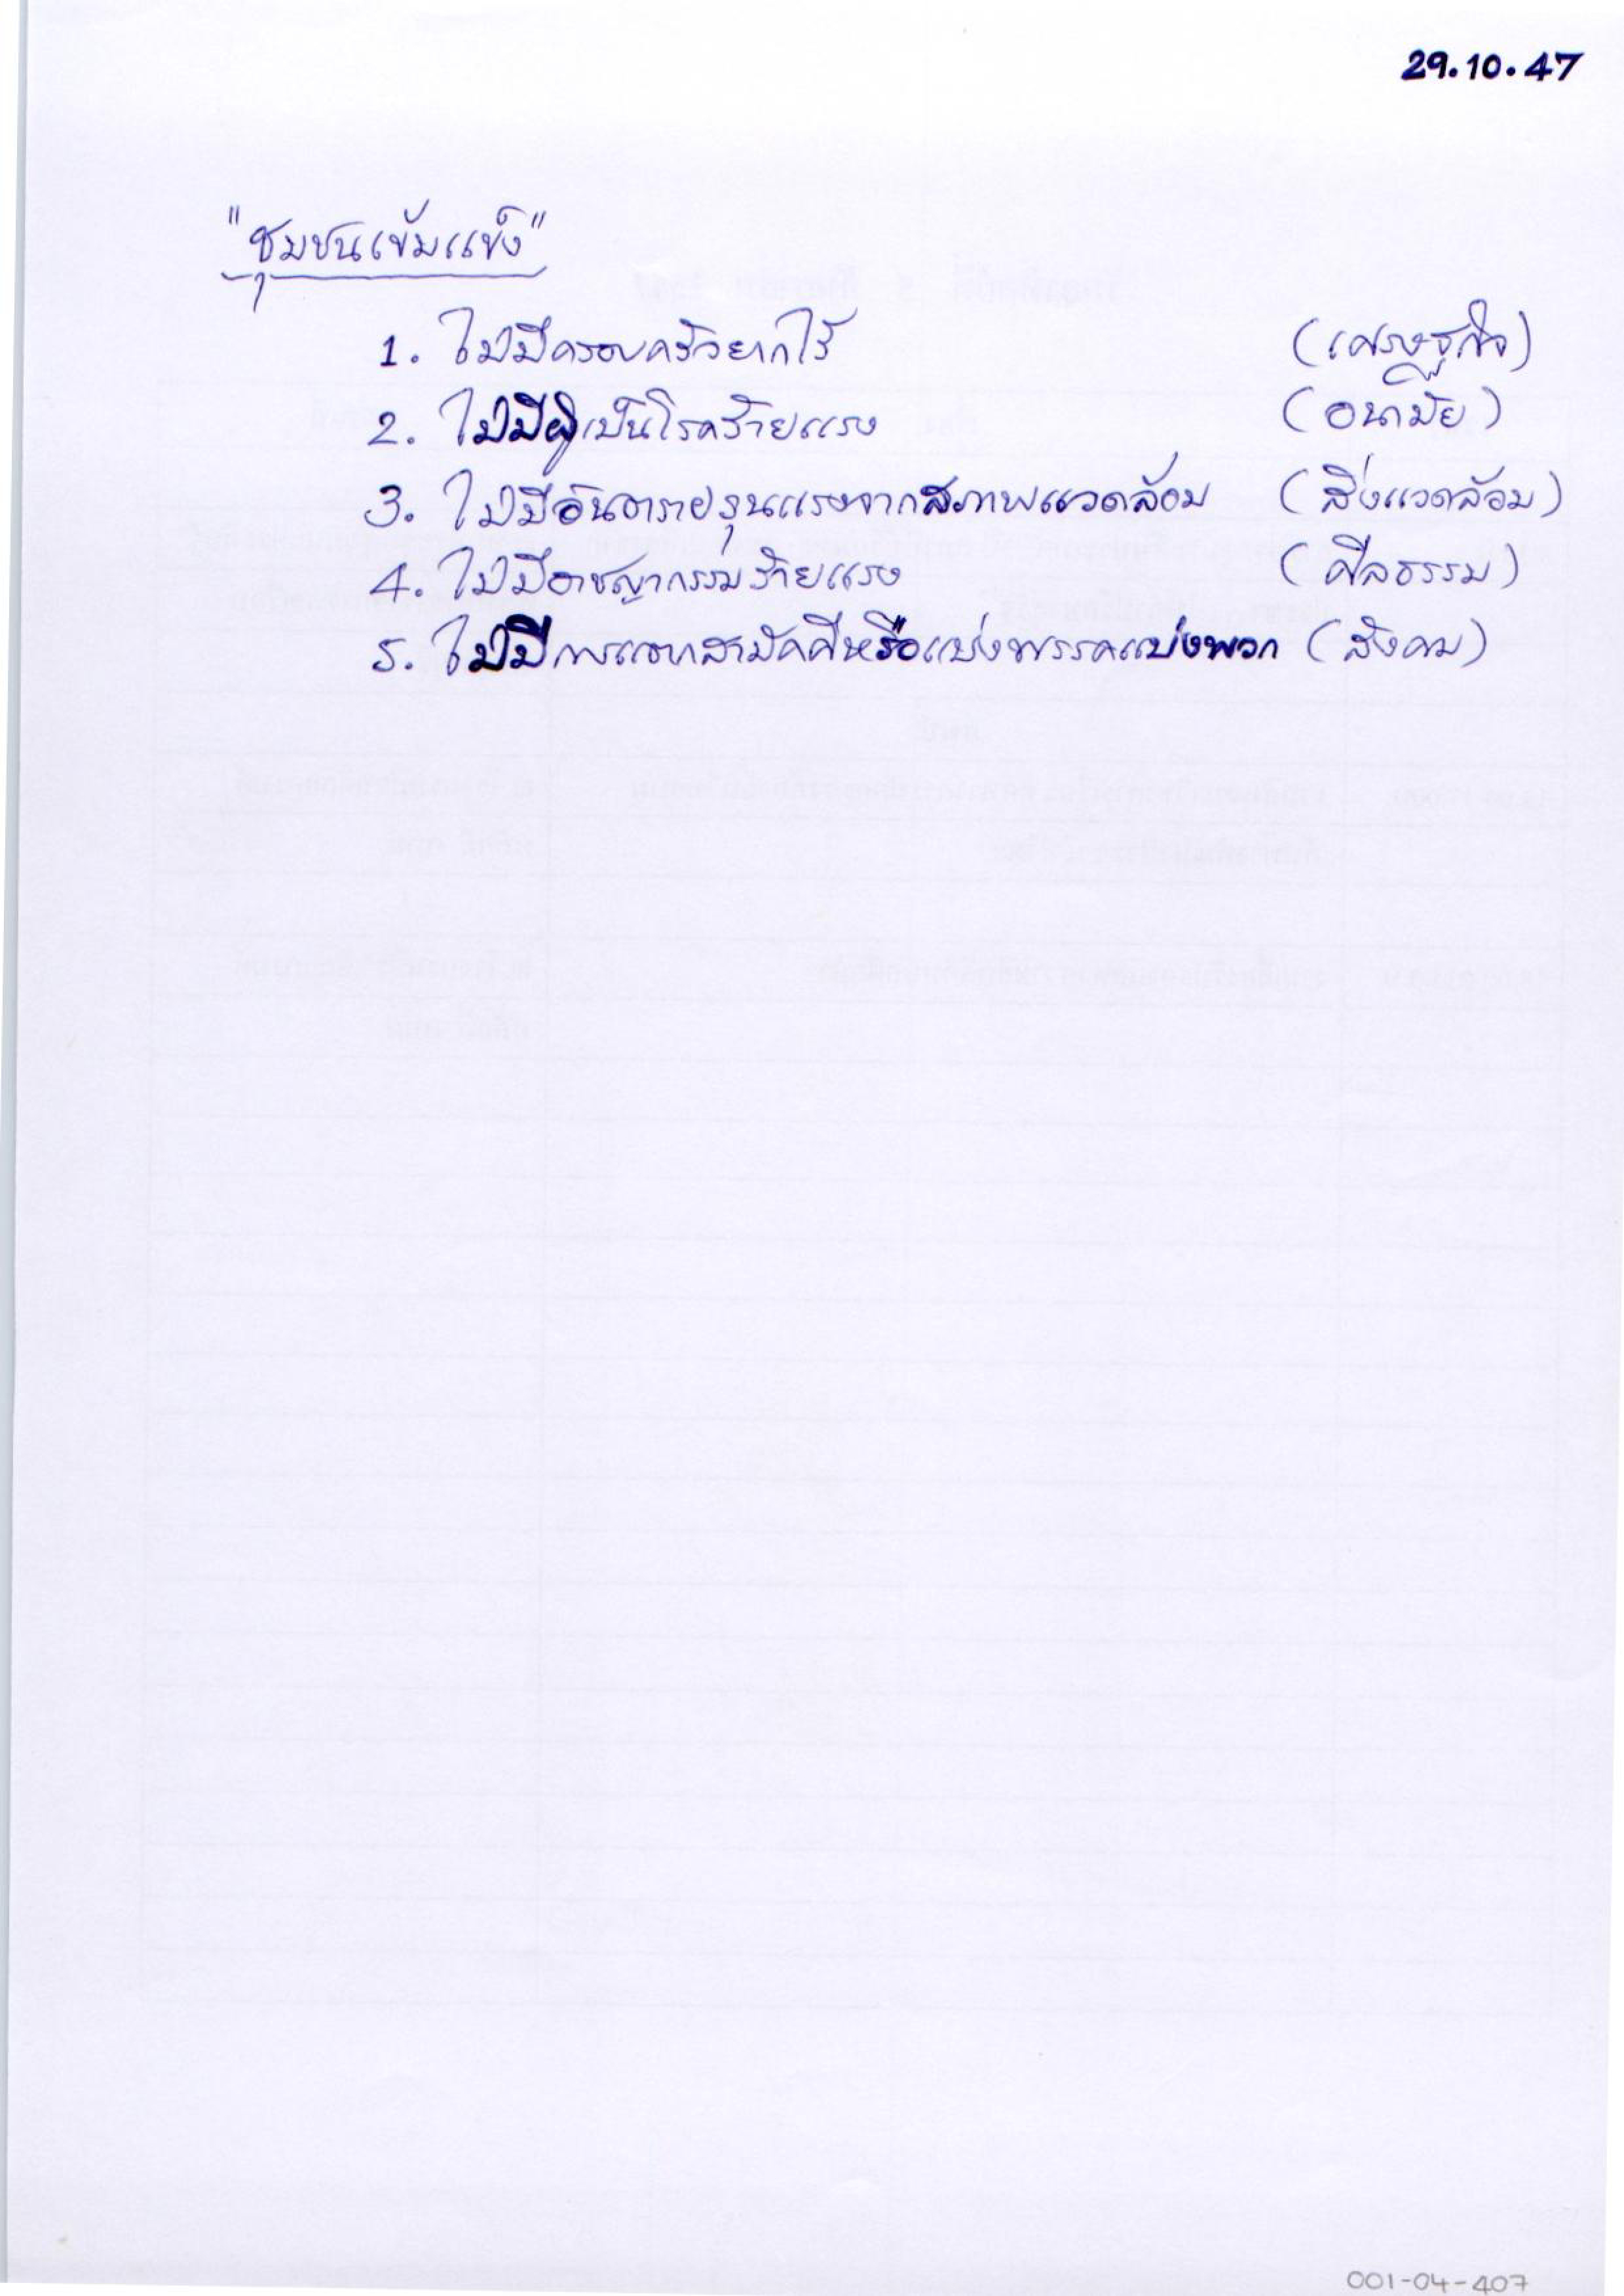 29.10.47
"ชุมชนเข้มแข็ง"
1. ไม่มีครอบครัวยากไร้ (เศรษฐกิจ)
2. ไม่มีผู้เป็นโรคร้ายแรง (อนามัย)
3. ไม่มีอันตรายรุนแรงจากสภาพแวดล้อม (สิ่งแวดล้อม)
4. ไม่มีอาชญากรรมร้ายแรง (ศีลธรรม)
5. ไม่มีการแตกสามัคคีหรือแบ่งพรรคแบ่งพวก (สังคม)
001-04-407